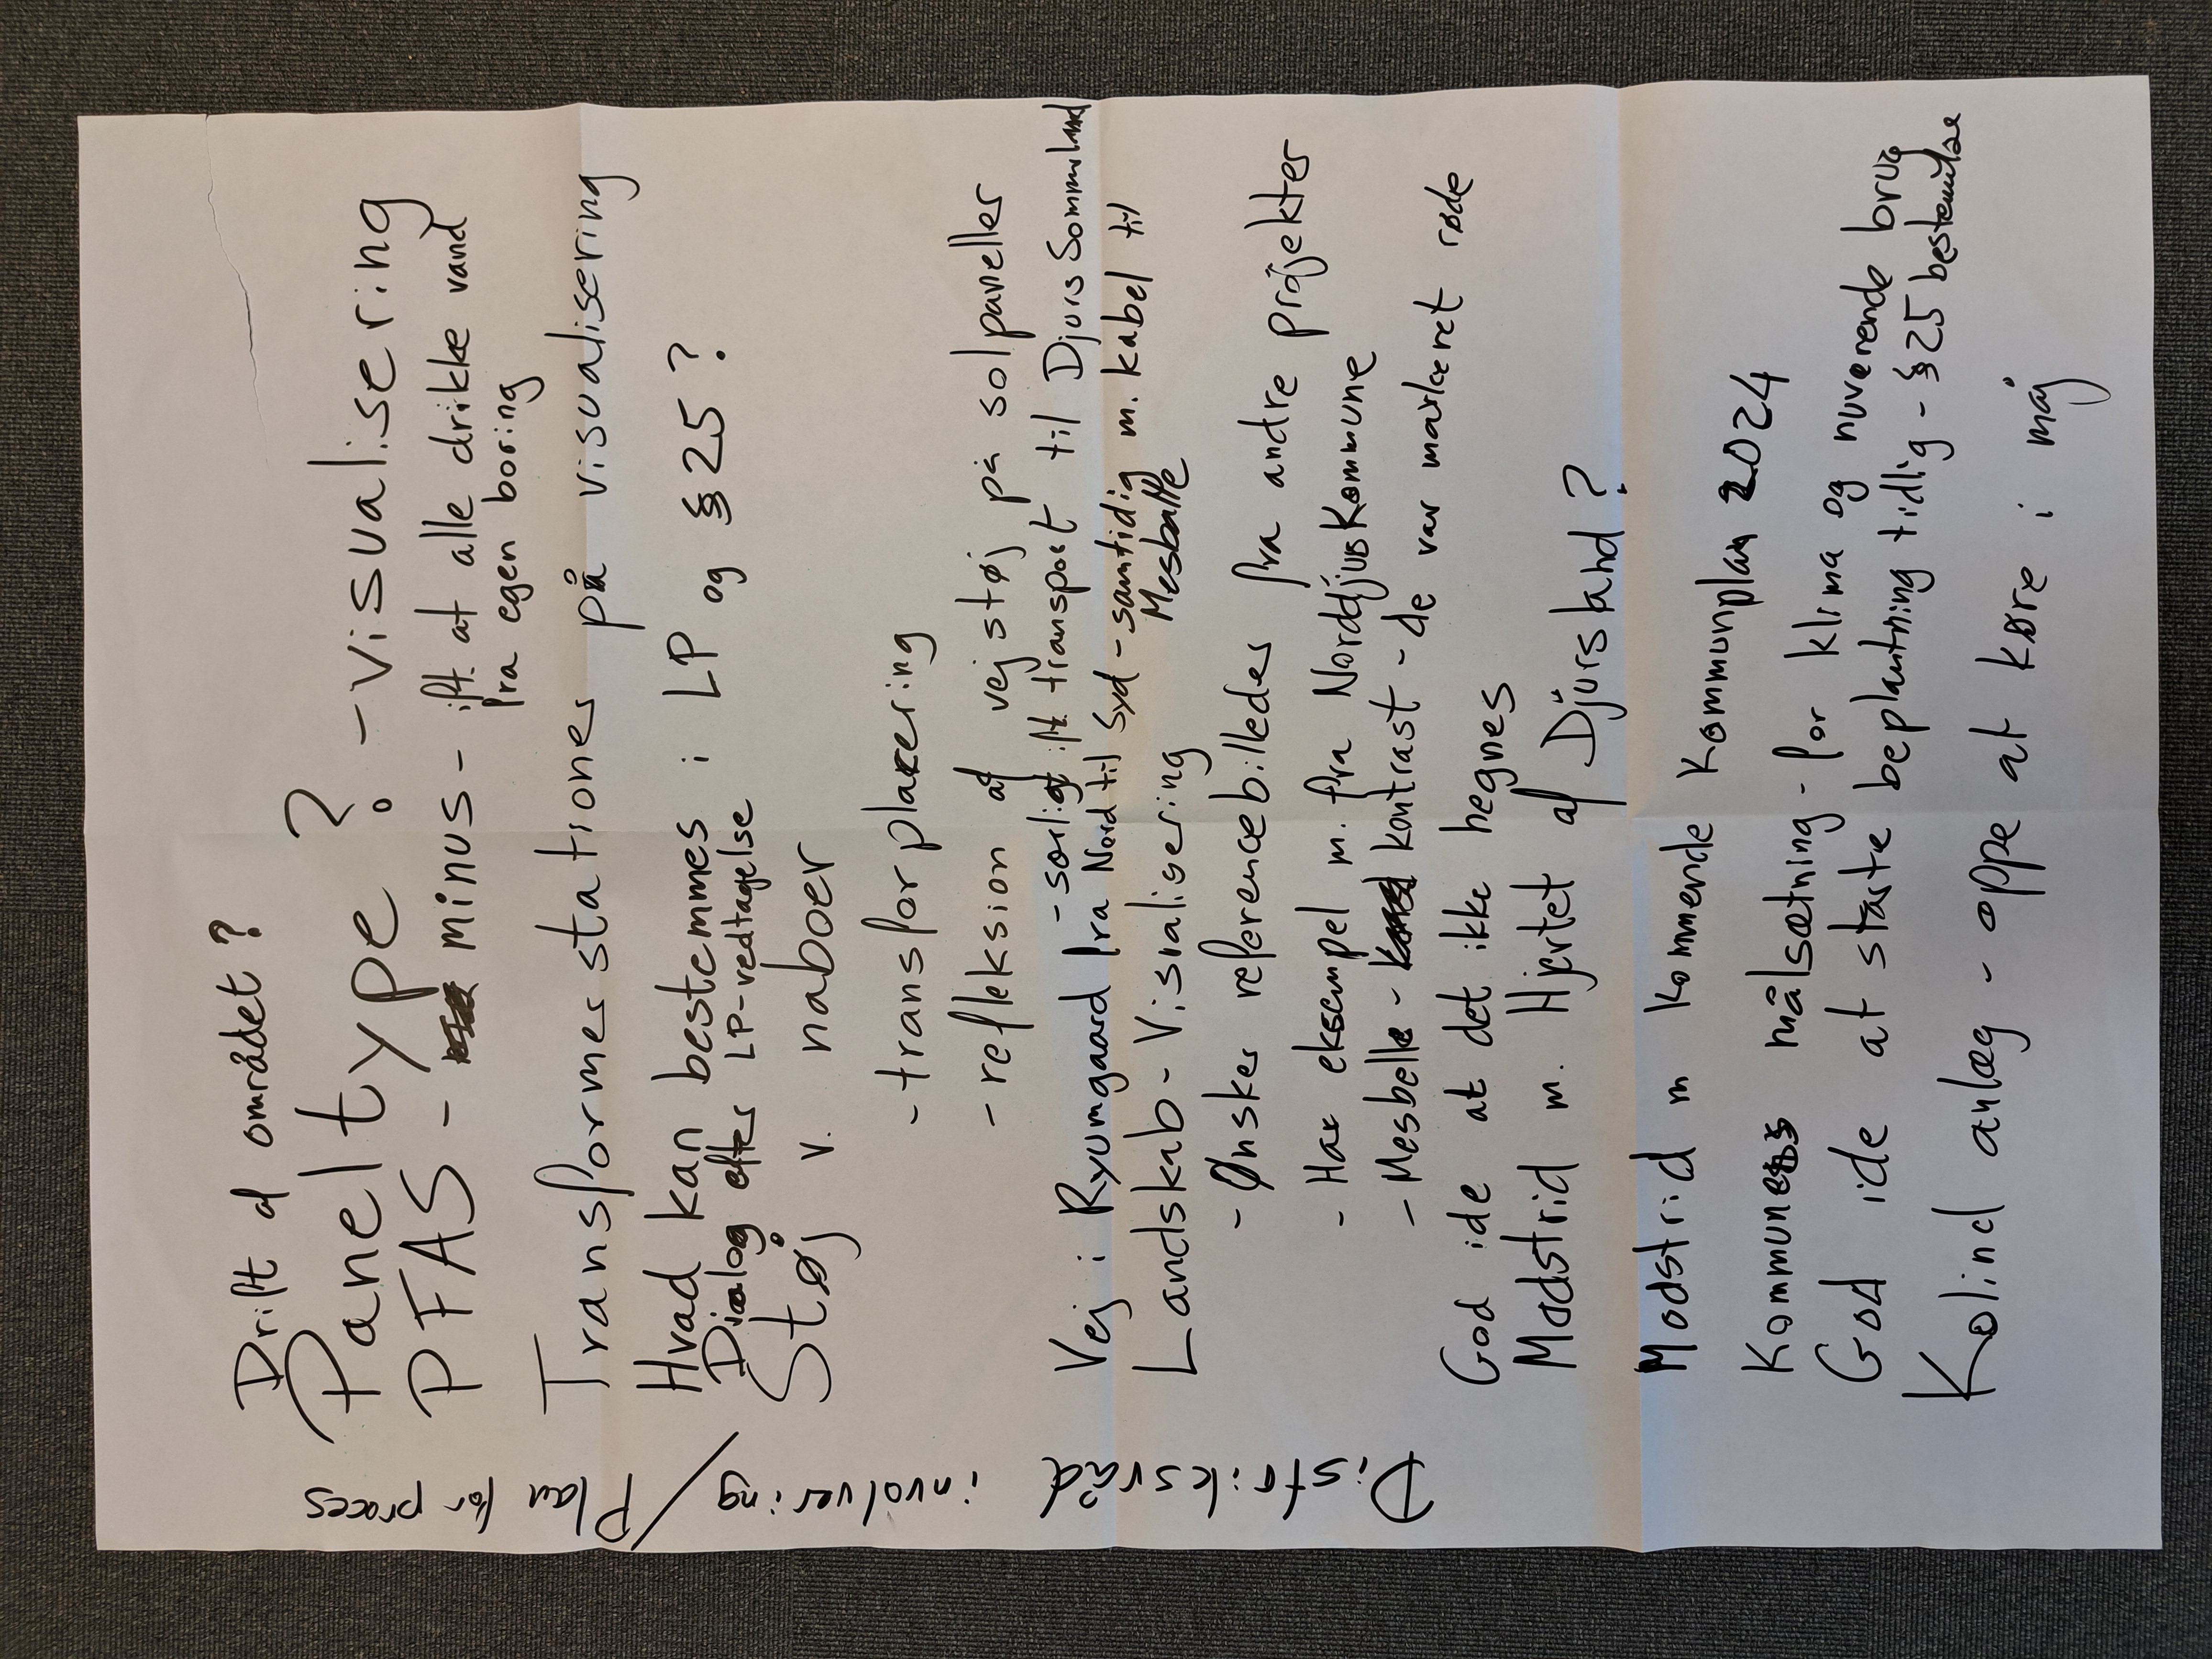 Drift af området?
Paneltype? - visualisering
PFAS - minus - ift. at alle drikke vand
fra egen boring
Transformerstationer på visualisering
Hvad kan bestemmes i LP og §25?
Dialog efter LP-vedtagelse
Støj v. naboer
- transforplacering
- refleksion af vejstøj på solpaneller
- særligt ift transport til DjursSommerland
Vej i Ryumgaard fra Nord til Syd - samtidig m. kabel til
Mesballe
Landskab - Visialisering
- Ønsker referencebilleder fra andre projekter
- Har eksempel m. fra NorddjursKommune
- Mesbelle - kontrast - de var markeret røde
God ide at det ikke hegnes
Modstrid m. Hjertet af Djursland?
Modstrid m kommende Kommunplan 2024
Kommunes målsætning - for klima og nuværende brug
God ide at starte beplantning tidlig - §25 bestemmelse
Kolind anlæg - oppe at køre i maj
Distriksråd involvering / Plan for proces